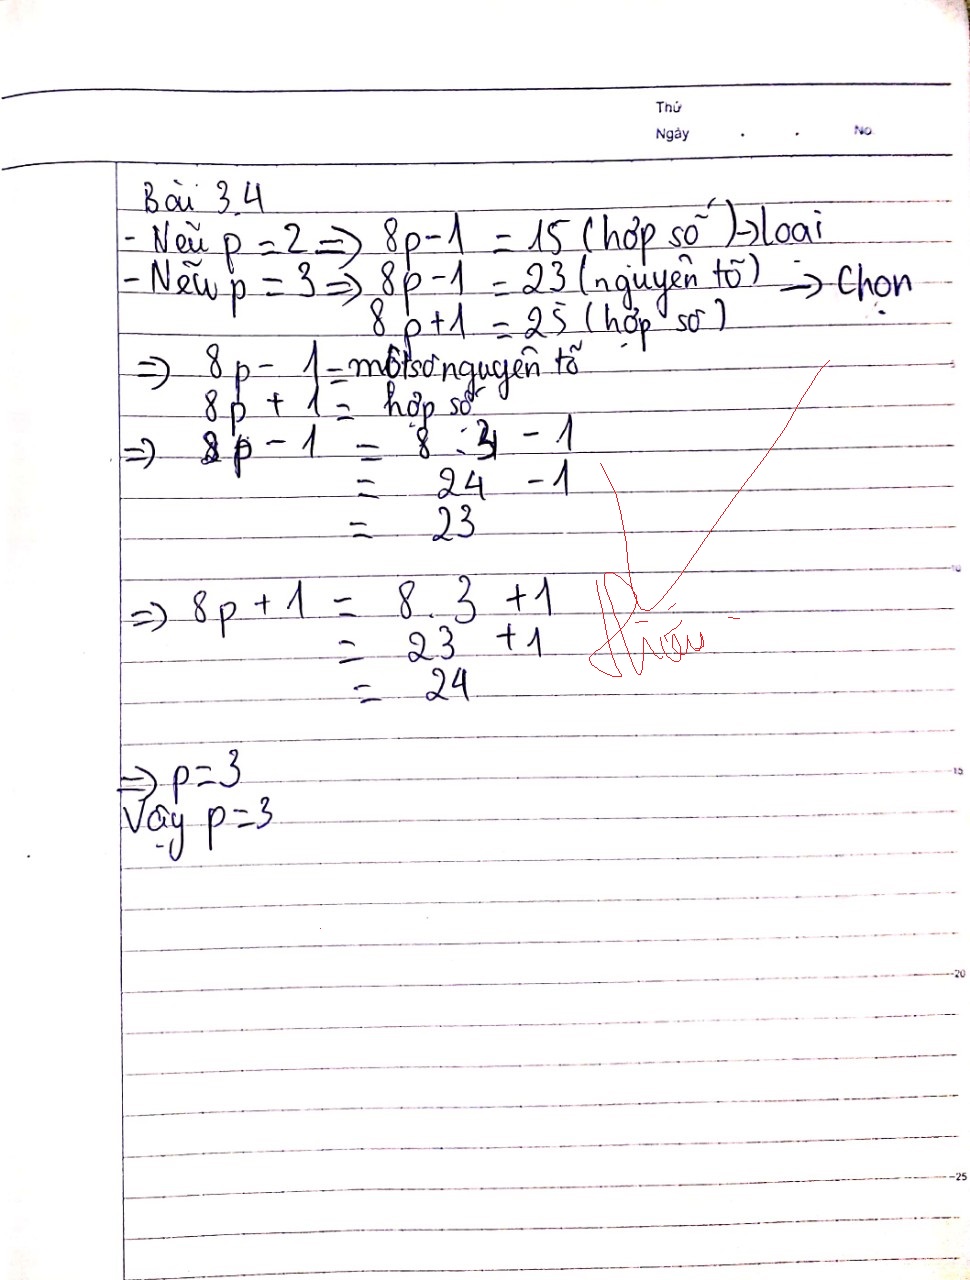 Thứ
Ngày . . No
Bài 3.4
- Nếu p = 2 => 8p - 1 = 15 (hợp số) -> loại
- Nếu p = 3 => 8p - 1 = 23 (nguyên tố) => Chọn
8p + 1 = 25 (hợp số)
=> 8p - 1 = một số nguyên tố
8p + 1 = hợp số
=> 8p - 1 = 8 . 3 - 1
= 24 - 1
= 23
10
=> 8p + 1 = 8 . 3 + 1
= 23 + 1
thiếu
= 24
=> p = 3
15
Vậy p = 3
20
25